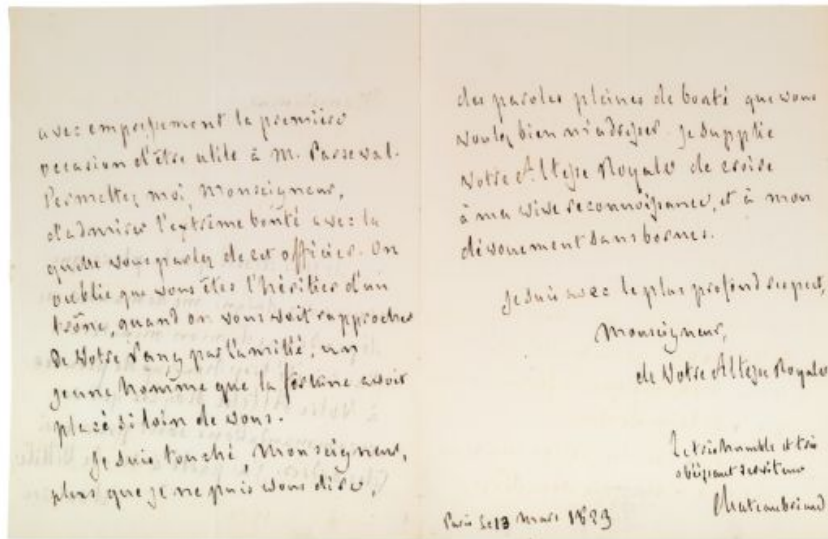 avec empressement la première
occasion d'être utile à M. Parseval.
Permettez moi, Monseigneur,
d'admirer l'extrême bonté avec la
quelle vous parlez de cet officier. On
oublie que vous êtes l'héritier d'un
trône, quand on vous voit rapprocher
de votre rang, par l'amitié, un
jeune homme que la fortune avoit
placé si loin de vous.
Je suis touché Monseigneur,
plus que je ne puis vous dire,
des paroles pleines de bonté que vous
voulez bien m'adresser. Je supplie
Votre Altesse Royale de croire
à ma vive reconnoissance, et à mon
dévouement sans bornes.
Je suis avec le plus profond respect,
Monseigneur,
de Votre Altesse Royale
Le très humble et très
obéissant serviteur
Chateaubriand
Paris le 13 mars 1823